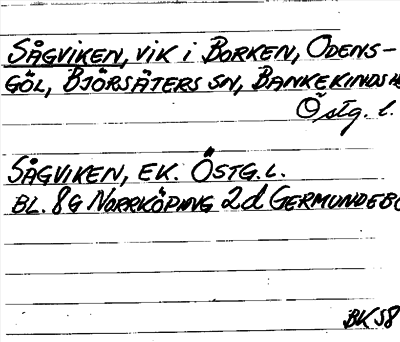 SÅGVIKEN, VIK I BORKEN, ODENS-
GÖL, BJÖRSÄTERS SN, BANKEKINDS H
Östg. l.
SÅGVIKEN, EK. ÖSTG. L.
BL. 8G NORRKÖPING 2d GERMUNDEBO
BK 58